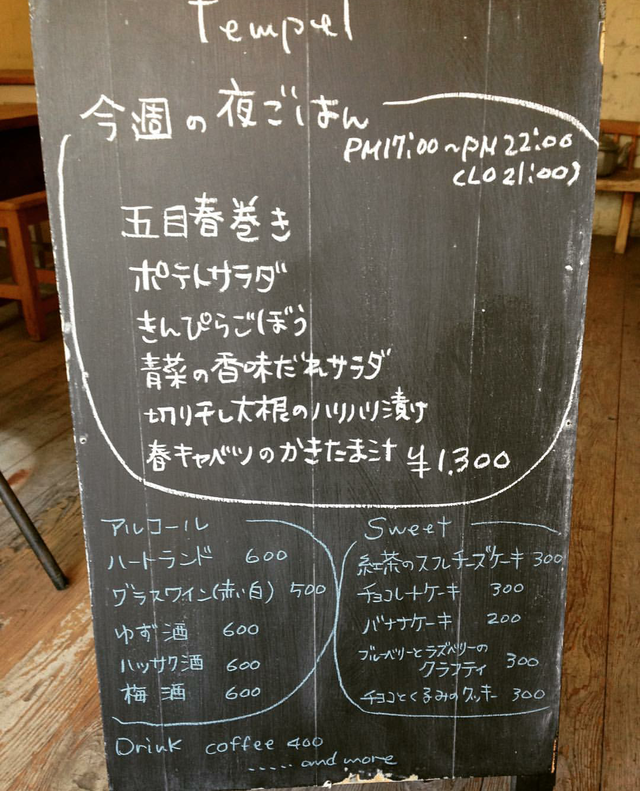 Tempel
今週の夜ごはん
PM17:00〜PM22:00
(LO 21:00)
五目春巻き
ポテトサラダ
きんぴらごぼう
青菜の香味だれサラダ
切り干し大根のハリハリ漬け
春キャベツのかきたま汁 ¥1.300
アルコール
ハートランド 600
グラスワイン(赤い白) 500
ゆず酒 600
ハッサク酒 600
梅酒 600
Sweet
紅茶のスフレチーズケーキ 300
チョコレートケーキ 300
バナナケーキ 200
ブルーベリーとラズベリーの
クラフティ 300
チョコとくるみのクッキー 300
Drink coffee 400
..... and more